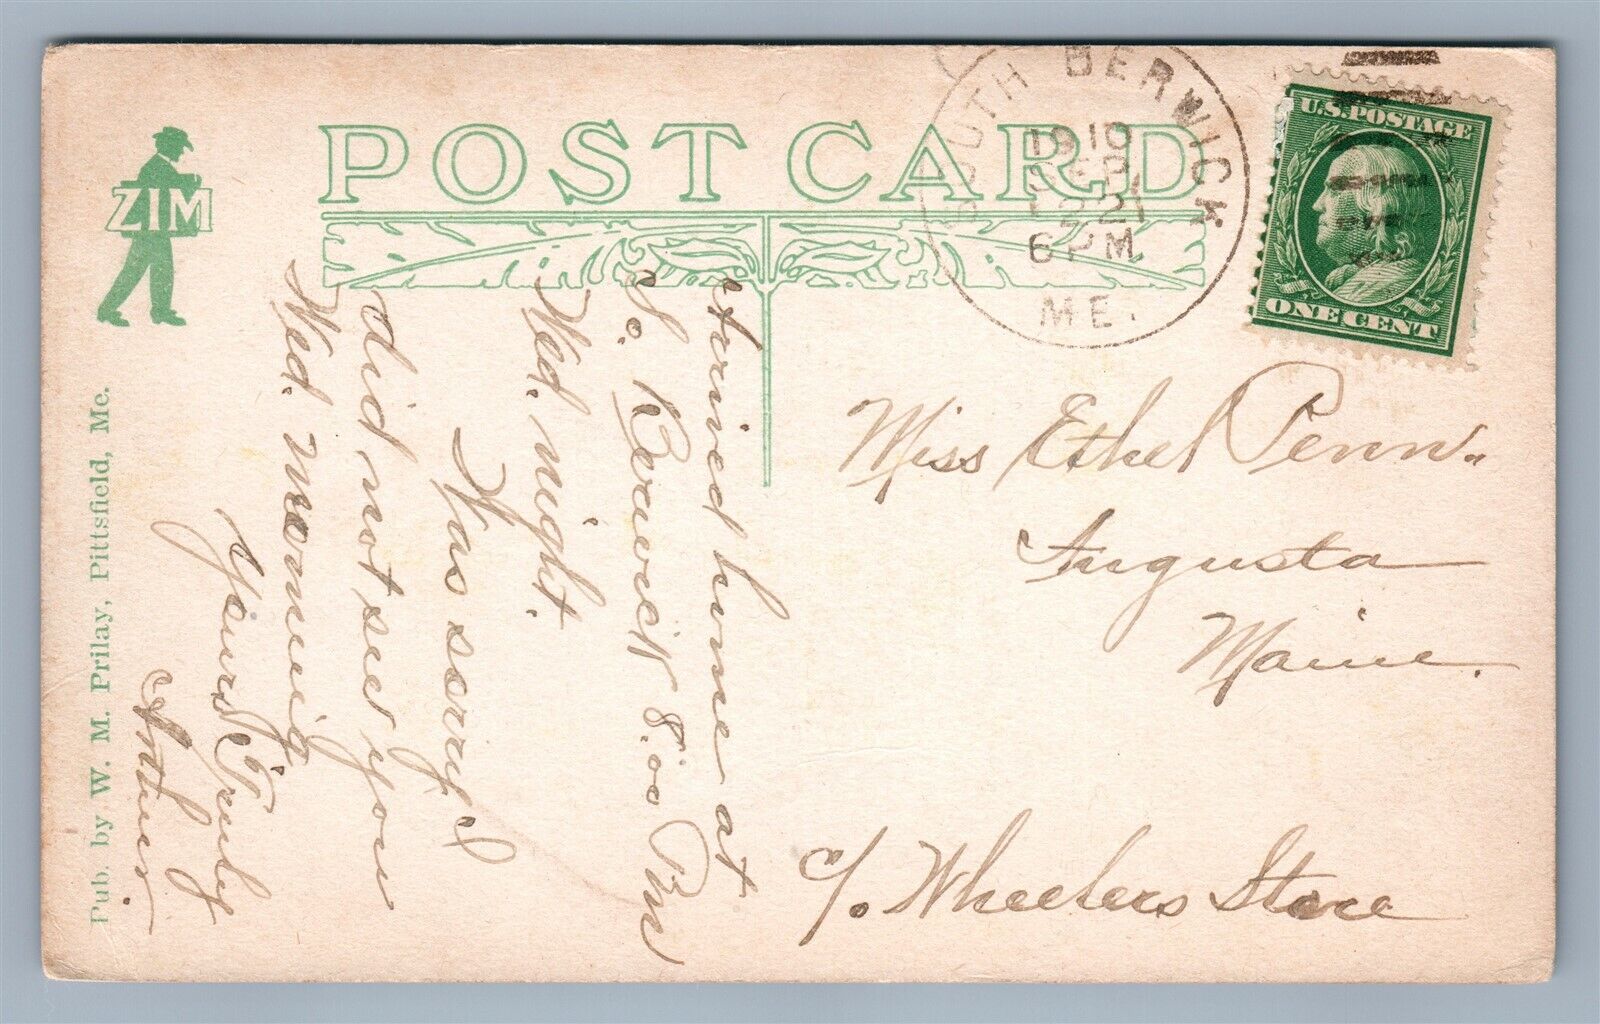 POST CARD
ZIM
Pub. by W. M. Prilay, Pittsfield, Me.
SOUTH BERWICK
1910
SEP
22
6 PM
ME.
U.S. POSTAGE
ONE CENT
Arrived home at
So. Berwick 8.00 PM
Wed. night.
Was sorry I
did not see you
Wed. morning
Yours Truly
Arthur.
Miss Ethel Penn.
Augusta
Maine.
c/o. Wheelers Store